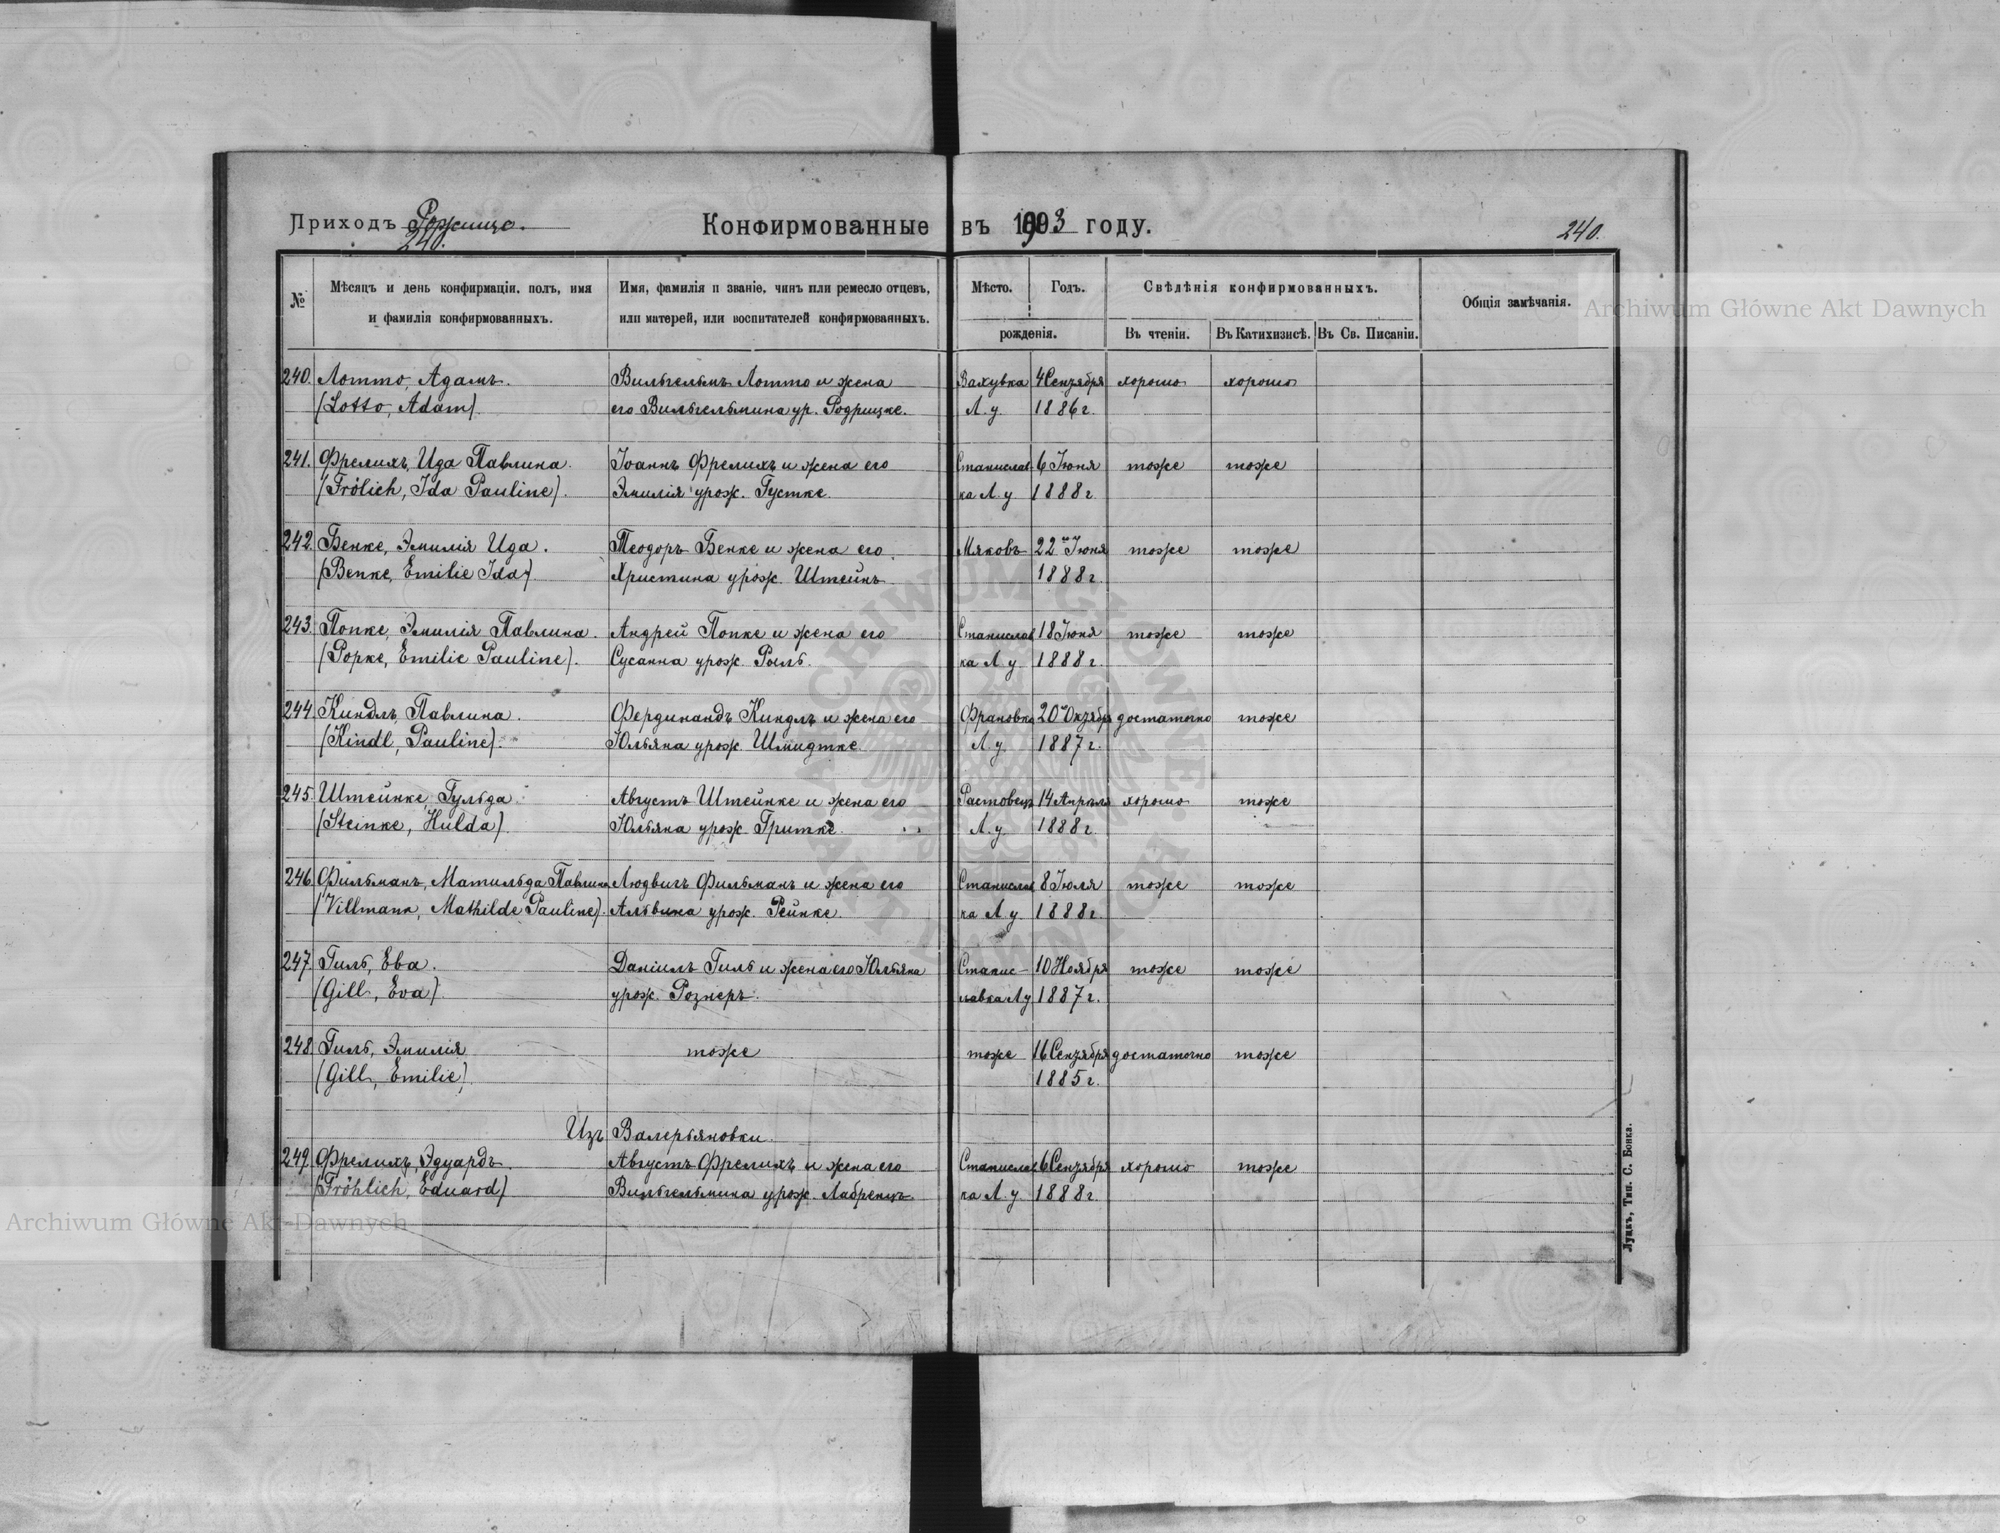 Приходъ Рожище. Конфирмованные въ 1903 году. 240.
240.
№ Мѣсяцъ и день конфирмаціи, полъ, имя и фамилія конфирмованныхъ. Имя, фамилія и званіе, чинъ или ремесло отцевъ, или матерей, или воспитателей конфирмованныхъ. Мѣсто. Годъ. рожденія. Свѣдѣнія конфирмованныхъ. Въ чтеніи. Въ Катихизисѣ. Въ Св. Писаніи. Общія замѣчанія.
240. Лотто, Адамъ. Вильгельмъ Лотто и жена Вахувка 4 Сентября хорошо хорошо
(Lotto, Adam). его Вильгельмина ур. Родрицке. Л. у. 1886 г.
241. Фрелихъ, Ида Павлина. Іоаннъ Фрелихъ и жена его Станислав 6 Іюня тоже тоже
(Frölich, Ida Pauline). Эмилія урож. Густке. ка Л. у. 1888 г.
242. Бенке, Эмилія Ида. Теодоръ Бенке и жена его Мяковъ 22 Іюня тоже тоже
(Benke, Emilie Ida). Христина урож. Штейнъ. 1888 г.
243. Попке, Эмилія Павлина. Андрей Попке и жена его Станислав 18 Іюня тоже тоже
(Popke, Emilie Pauline). Сусанна урож. Рыль. ка Л. у. 1888 г.
244. Киндлъ, Павлина. Фердинандъ Киндлъ и жена его Франовка 20 Октября достаточно тоже
(Kindl, Pauline). Юльяна урож. Шмидтке. Л. у. 1887 г.
245. Штейнке, Гульда. Августъ Штейнке и жена его Растовецъ 14 Апрѣля хорошо тоже
(Steinke, Hulda). Юльяна урож. Гритке. Л. у. 1888 г.
246. Фильманъ, Матильда Павлина Людвигъ Фильманъ и жена его Станислав 8 Іюля тоже тоже
(Villmann, Mathilde Pauline). Альвина урож. Рейнке. ка Л. у. 1888 г.
247. Гиль, Ева. Даніилъ Гиль и жена его Юльяна Станис- 10 Ноября тоже тоже
(Gill, Eva). урож. Рознеръ. лавка Л у 1887 г.
248. Гиль, Эмилія тоже тоже 16 Сентября достаточно тоже
(Gill, Emilie). 1885 г.
Изъ Валерьяновки.
249. Фрелихъ, Эдуардъ. Августъ Фрелихъ и жена его Станислав 6 Сентября хорошо тоже
(Fröhlich, Eduard) Вильгельмина урож. Лабренцъ. ка Л. у. 1888 г.
Луцкъ, Тип. С. Бонка.
Archiwum Główne Akt Dawnych
Archiwum Główne Akt Dawnych
ARCHIWUM GŁÓWNE AKT DAWNYCH